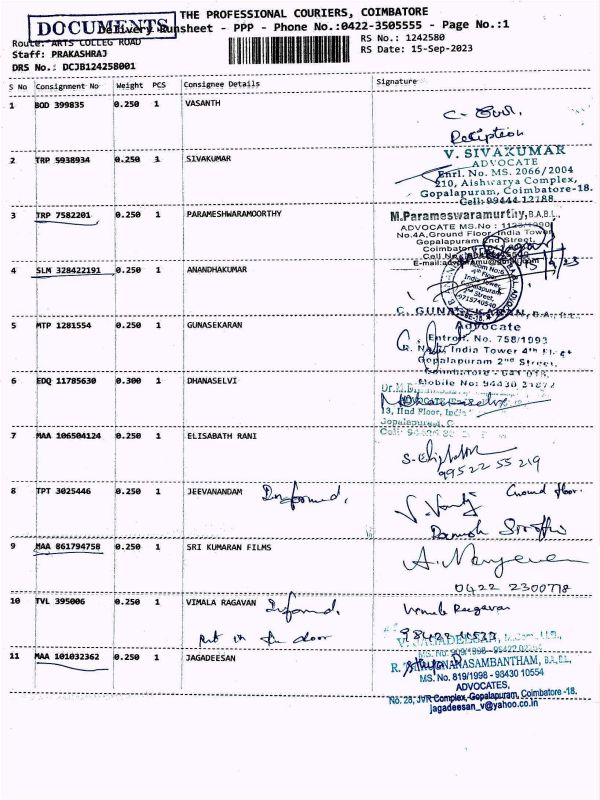 THE PROFESSIONAL COURIERS, COIMBATORE
DOCUMENTS
Delivery Runsheet - PPP - Phone No.:0422-3505555 - Page No.:1
Route: ARTS COLLEG ROAD
RS No.: 1242580
Staff: PRAKASHRAJ
RS Date: 15-Sep-2023
DRS No.: DCJB124258001
S No Consignment No Weight PCS Consignee Details Signature
1 BOD 399835 0.250 1 VASANTH
Reception
2 TRP 5938934 0.250 1 SIVAKUMAR
V. SIVAKUMAR
ADVOCATE
Enrl. No. MS. 2066/2004
210, Aishwarya Complex,
Gopalapuram, Coimbatore-18.
Cell: 99444 12788
3 TRP 7582201 0.250 1 PARAMESHWARAMOORTHY
M.Parameswaramurthy, B.A.B.L.,
ADVOCATE MS.No :
No.4A,Ground Floor, India Tower
Gopalapuram 2nd Street,
4 SLM 328422191 0.250 1 ANANDHAKUMAR
5 MTP 1281554 0.250 1 GUNASEKARAN
C. GUNASEKARAN, B.A., B.L.,
Advocate
Entroll. No. 758/1993
India Tower 4th Floor
Gopalapuram 2nd Street,
Coimbatore - 641 018.
Mobile No: 94430 31872
6 EDQ 11785630 0.300 1 DHANASELVI
13, IInd Floor,
7 MAA 106504124 0.250 1 ELISABATH RANI
99522 55 219
8 TPT 3025446 0.250 1 JEEVANANDAM Informed.
Ground floor.
9 MAA 861794758 0.250 1 SRI KUMARAN FILMS
0422 2300778
10 TVL 395006 0.250 1 VIMALA RAGAVAN Informed.
Vimala Raagavan
Put in the door
11 MAA 101032362 0.250 1 JAGADEESAN
V. JAGADEESAN, M.Com., LL.B.,
R. THIRUGNANASAMBANTHAM, B.A., B.L.,
MS. No. 819/1998 - 98430 10554
ADVOCATES,
No. 28, JVR Complex, Gopalapuram, Coimbatore -18.
jagadeesan_v@yahoo.co.in